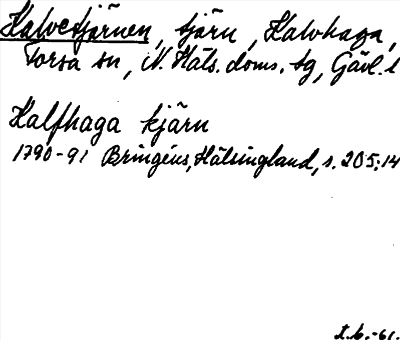 Kalvetjärnen, tjärn, Kalvhaga,
Torsa sn, N. Häls. doms. tg, Gävl. l
Kalfhaga kjärn
1790-91 Bringéus, Hälsingland, s. 205:14
I.b.-61.